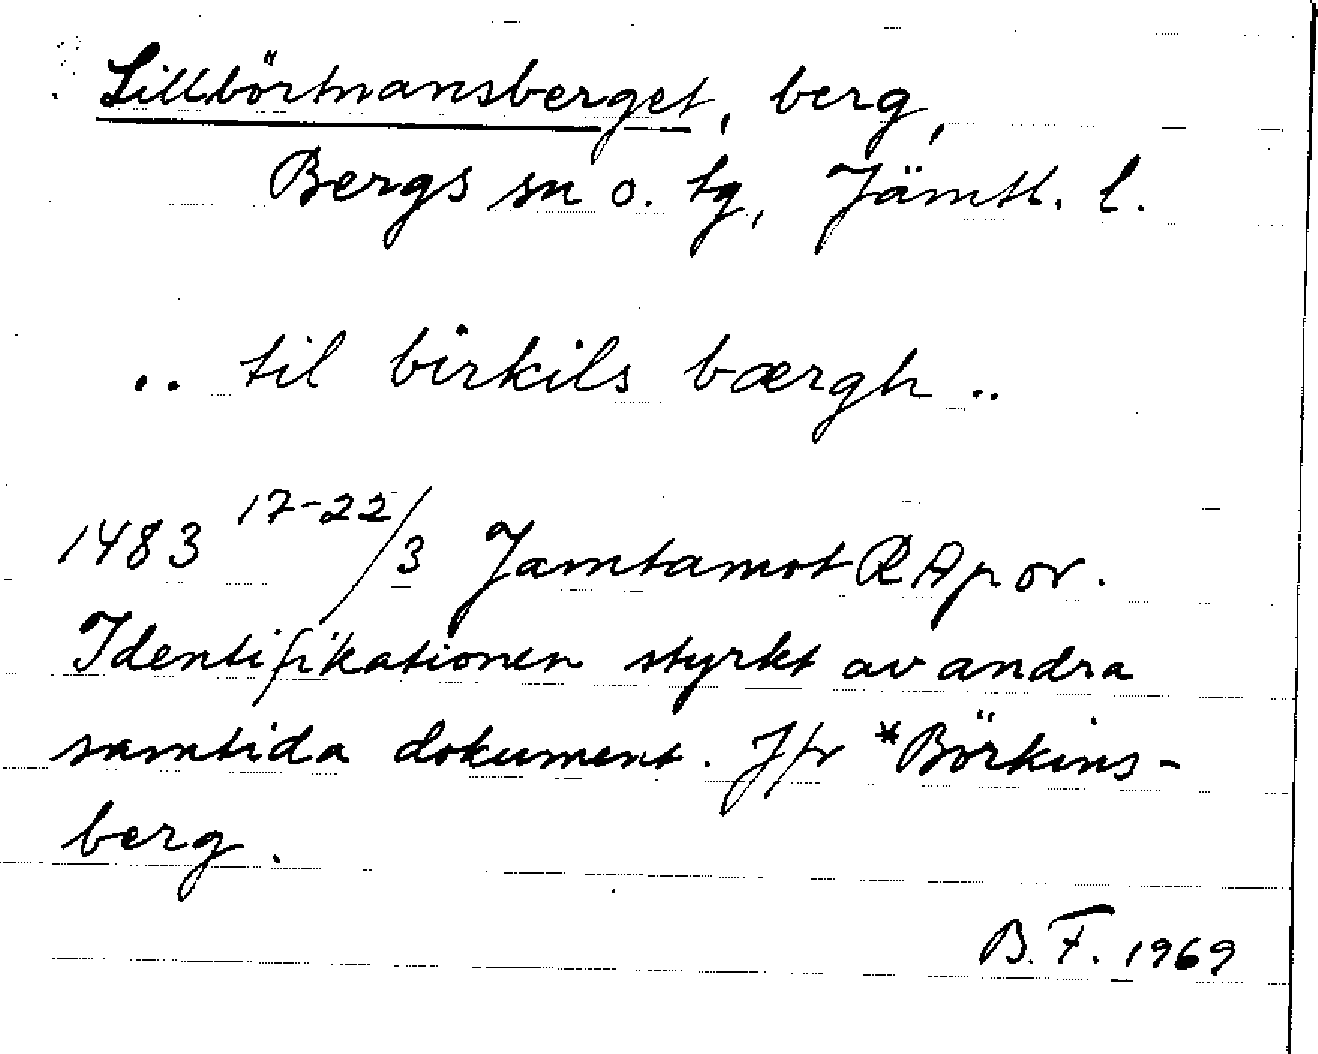 Lillbörtnansberget, berg,
Bergs sn o. tg, Jämtl. l.
.. til birkils bærgh ..
1483 17-22/3 Jamtamot RAp or.
Identifikationen styrkt av andra
samtida dokument. Jfr *Börkins-
berg.
B.F. 1969